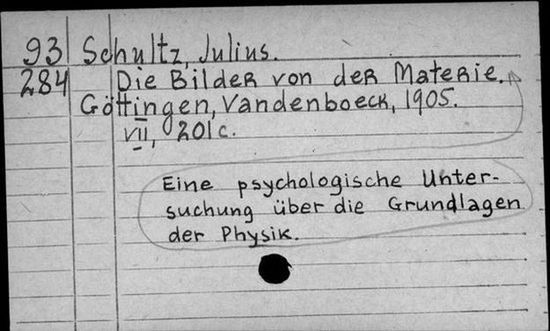 93 Schultz, Julius.
284 Die Bilder von der Materie.
Göttingen, Vandenboeck, 1905.
VII, 201c.
Eine psychologische Unter-
suchung über die Grundlagen
der Physik.